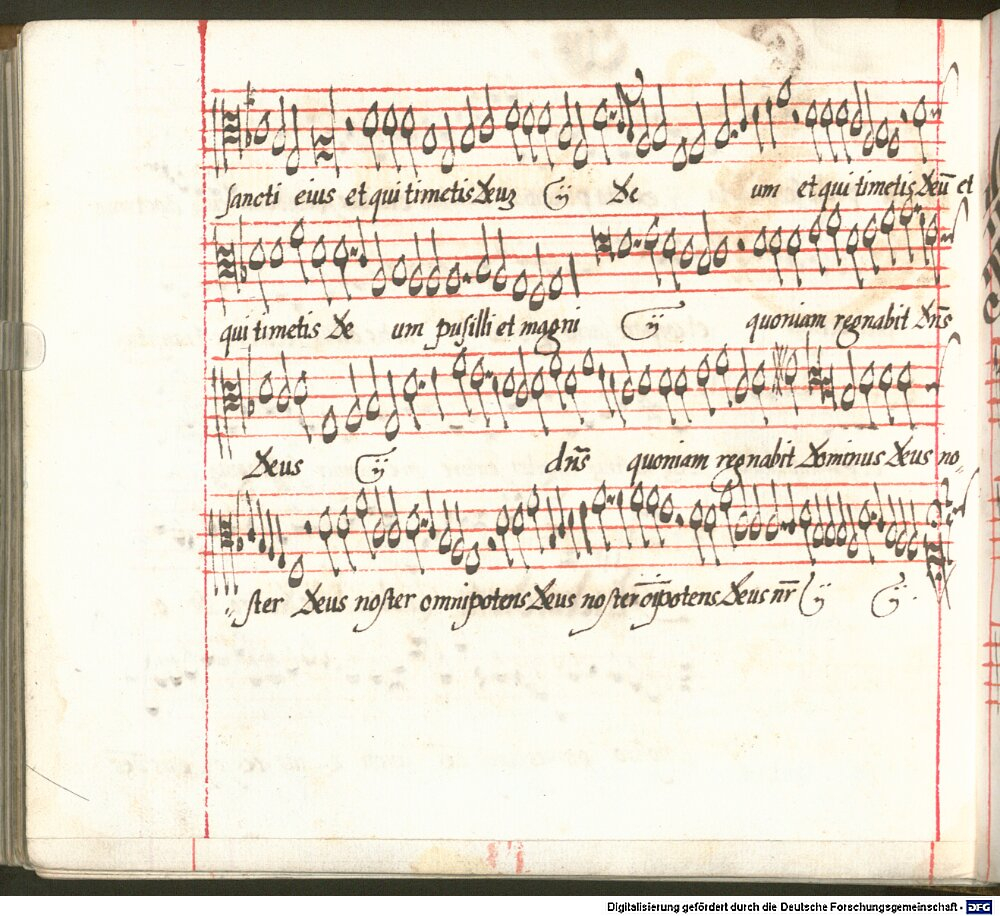 sancti eius et qui timetis Deuz ij De um et qui timetis Deū et
qui timetis De um pusilli et magni ij quoniam regnabit dn̄s
Deus ij dn̄s quoniam regnabit Dominus Deus no-
ster Deus noster omnipotens Deus noster oīpotens Deus nr̄ ij ij
Digitalisierung gefördert durch die Deutsche Forschungsgemeinschaft - DFG